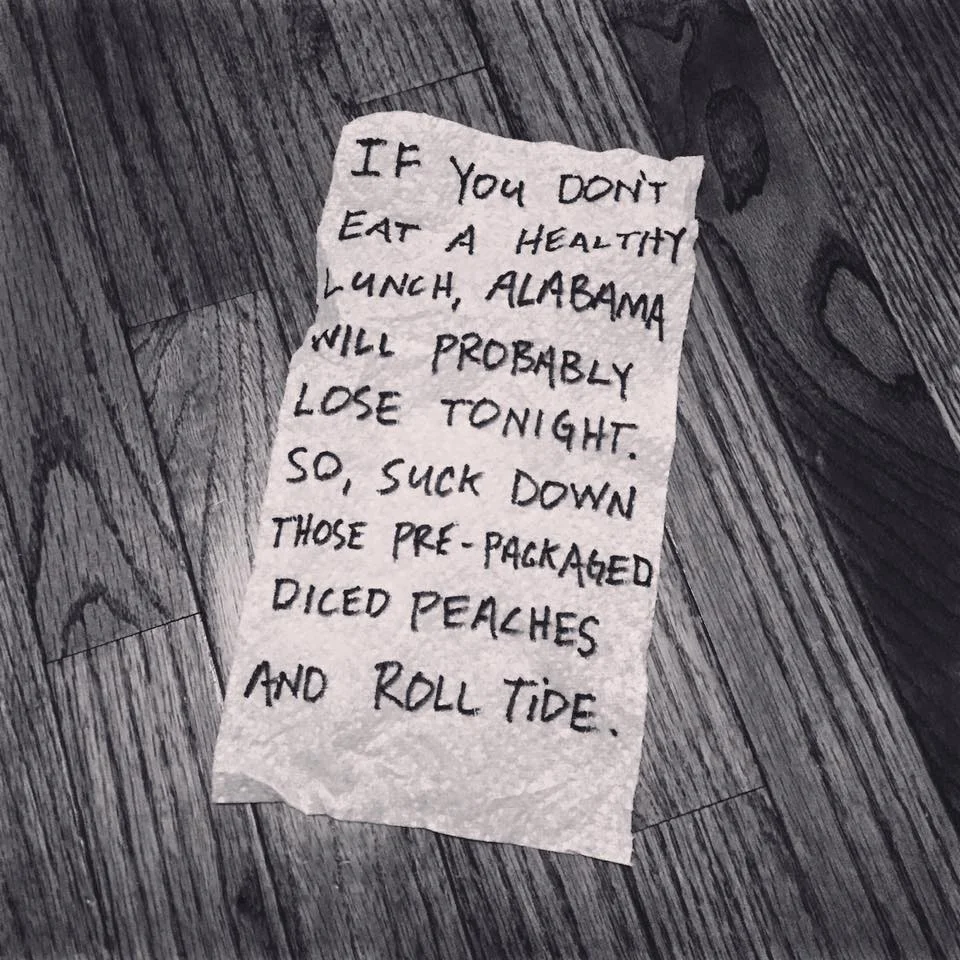 IF YOU DON'T
EAT A HEALTHY
LUNCH, ALABAMA
WILL PROBABLY
LOSE TONIGHT.
SO, SUCK DOWN
THOSE PRE-PACKAGED
DICED PEACHES
AND ROLL TiDE.